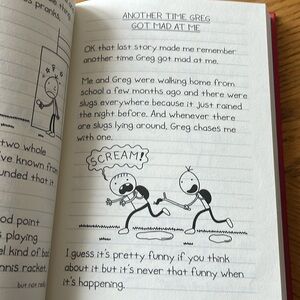 s pranks.
ANOTHER TIME GREG
GOT MAD AT ME
OK that last story made me remember
another time Greg got mad at me.
Me and Greg were walking home from
school a few months ago and there were
slugs everywhere because it just rained
the night before. And whenever there
are slugs lying around, Greg chases me
with one.
SCREAM!
I guess it's pretty funny if you think
about it but it's never that funny when
it's happening.
two whole
've known from
ounded that it
od point
s playing
el kind of bad
nnis racket.
but not real